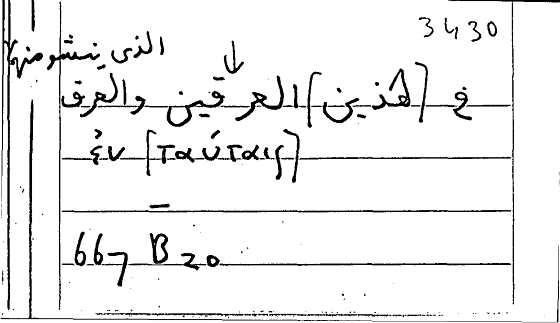 3430
الذى ينشو منها
فى [هذين] العرقين والعرق
ἐν [ταύταις]
667 B 20